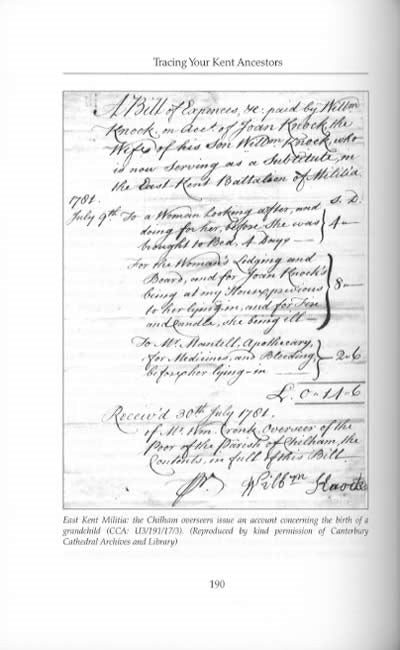 Tracing Your Kent Ancestors
A Bill of Expences, &c. paid by Willm
Knock, on Acct. of Joan Knock, the
Wife of his Son Willm Knock, who
is now Serving as a Substitute, in
the East Kent Battalion of Militia
1781.
S. D.
July 9th To a Woman Looking after, and
doing for her, before She was
brought to Bed, 4 Days — 4 —
For the Woman's Lodging and
Board, and for Joan Knock's
being at my House previous
to her lying-in, and for Fire
and Candle, she being ill — 8 —
To Mr. Mantell, Apothecary,
for Medicines, and Bleeding,
before her lying-in — 2-6
£. 0-14-6
Receiv'd 30th July 1781.
of Mr. Wm. Cronk Overseer of the
Poor of the Parish of Chilham, the
Contents, in full of this Bill.
East Kent Militia: the Chilham overseers issue an account concerning the birth of a
grandchild (CCA: U3/191/17/3). (Reproduced by kind permission of Canterbury
Cathedral Archives and Library)
190